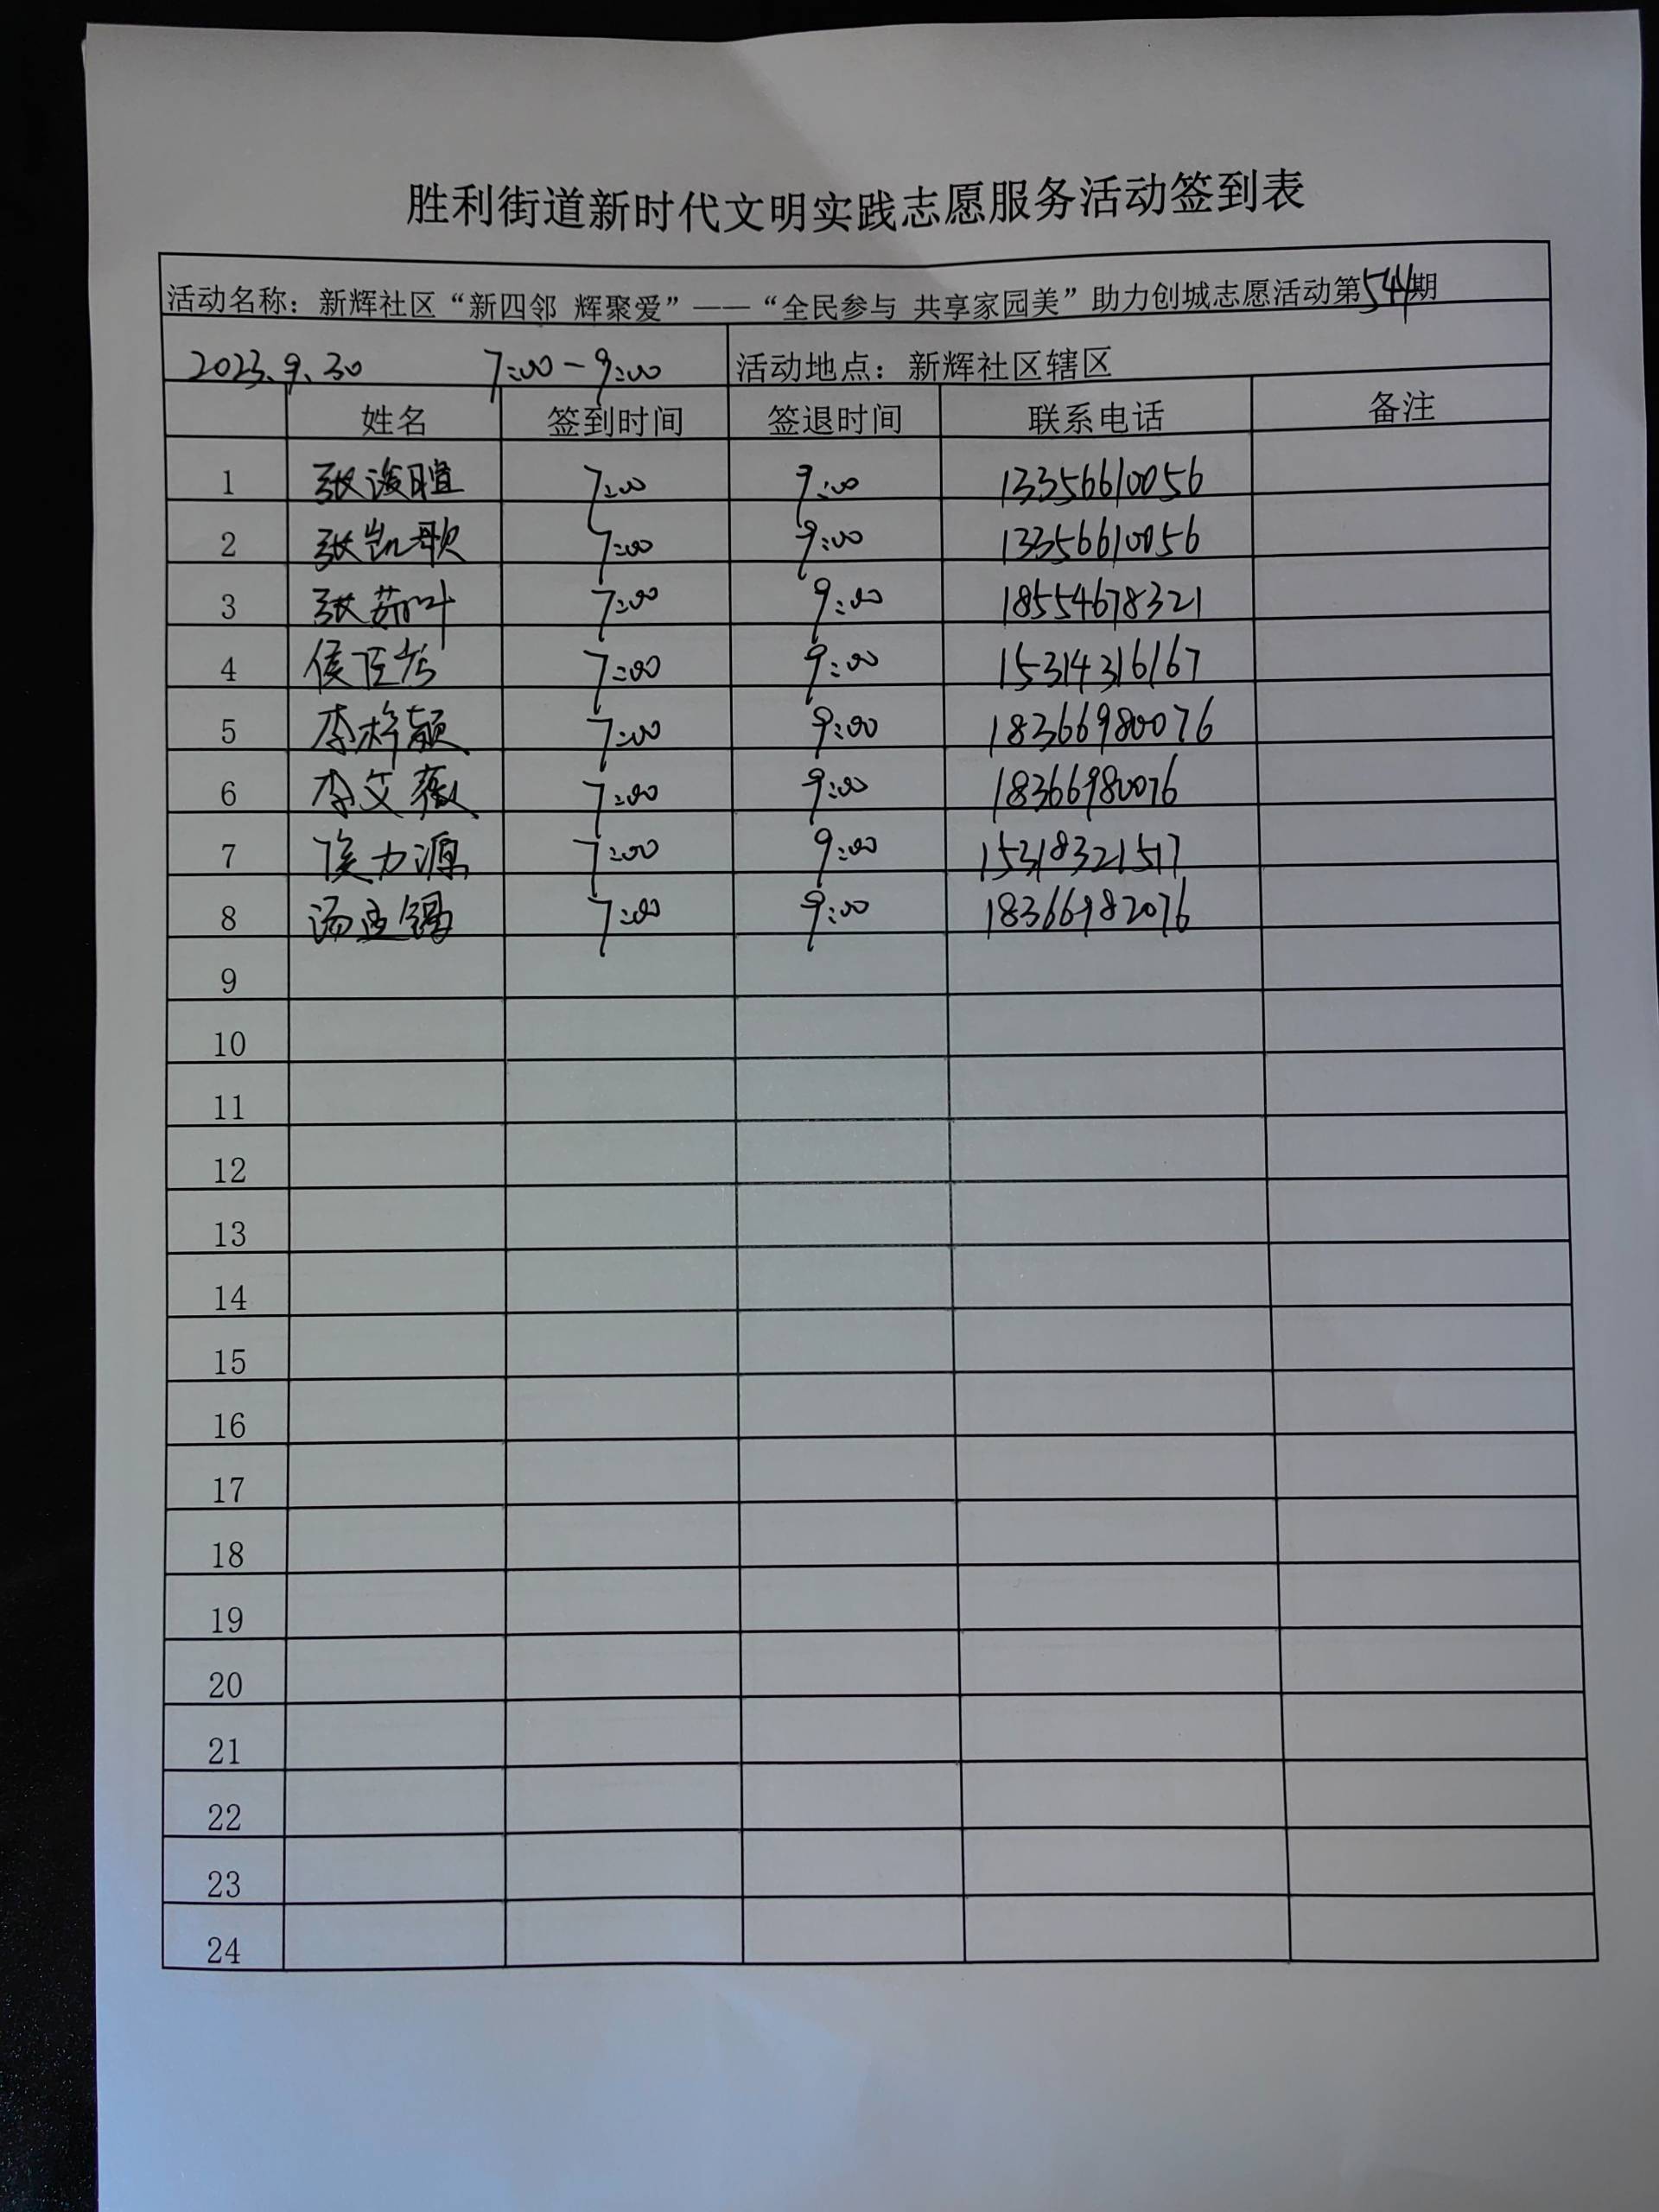 胜利街道新时代文明实践志愿服务活动签到表
活动名称：新辉社区“新四邻 辉聚爱”——“全民参与 共享家园美”助力创城志愿活动第544期
2023.9.30 7:00-9:00 活动地点：新辉社区辖区
姓名 签到时间 签退时间 联系电话 备注
1 张浚暄 7:00 9:00 13356610056
2 张凯歌 7:00 9:00 13356610056
3 张茹叶 7:00 9:00 18554678321
4 侯 7:00 9:00 15314316167
5 李梓颖 7:00 9:00 18366980076
6 李文薇 7:00 9:00 18366980076
7 侯力源 7:00 9:00 15318321517
8 汤 7:00 9:00 18366982076
9
10
11
12
13
14
15
16
17
18
19
20
21
22
23
24